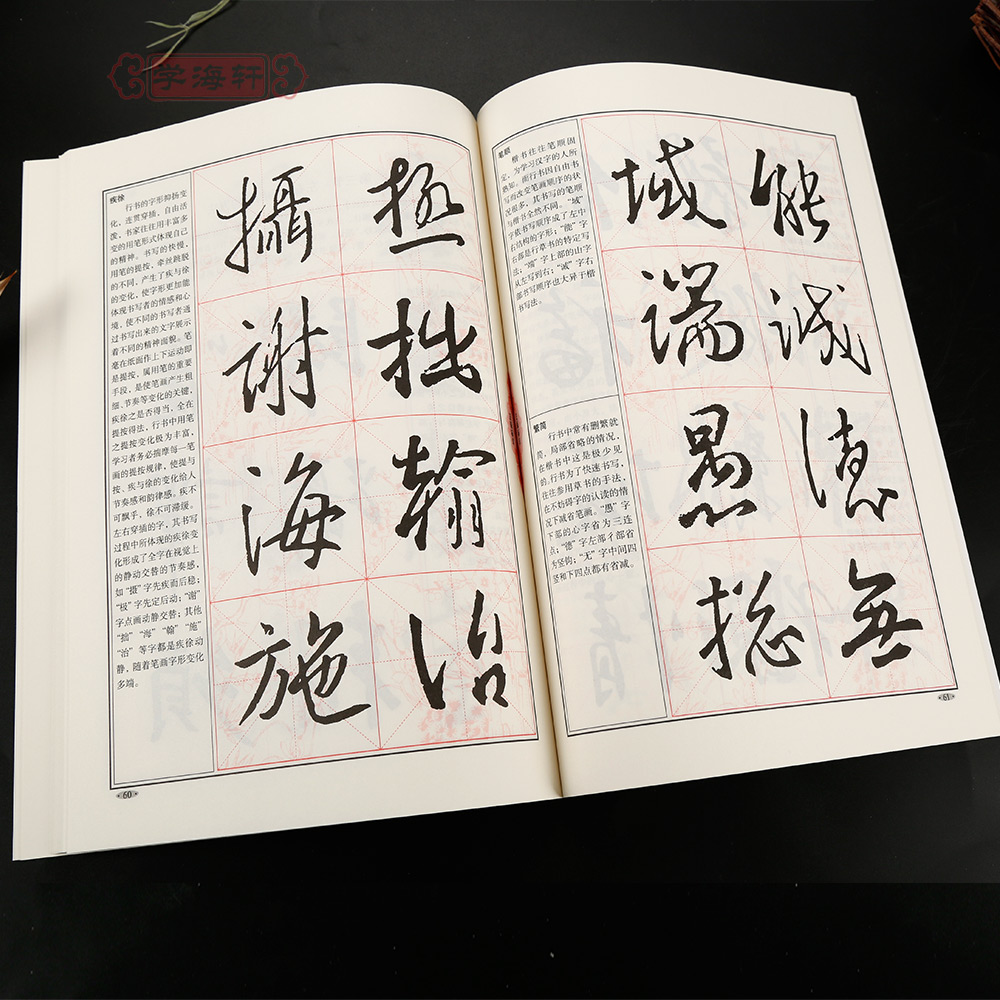 学海轩
疾徐
行书的字形抑扬变
化，连贯穿插，自由活
泼，书家往往用丰富多
变的用笔形式体现自己
的精神。书写的快慢，
用笔的提按，牵丝映脱
的不同，产生了疾与徐
的变化，使字形更加能
体现书写者的情感和心
境，使不同的书写者通
过书写出来的文字展示
着不同的精神面貌。笔
毫在纸面作上下运动即
是提按，属用笔的重要
手段，是使笔画产生粗
细、节奏等变化的关键，
疾徐之是否得当，全在
提按得法，行书中用笔
之提按变化极为丰富，
学习者务必揣摩每一笔
画的提按规律，使提与
按、疾与徐的变化给人
节奏感和韵律感。疾不
可飘手，徐不可滞缓。
左右穿插的字，其书写
过程中所体现的疾徐变
化形成了全字在视觉上
的静动交替的节奏感，
如“摄”字先疾而后稳；
“极”字先定后动；“谢”
字点画动静交替；其他
“拙”“海”“翰”“施”
“治”等字都是疾徐动
静，随着笔画字形变化
多端。
攝 極
謝 拙
海 翰
施 治
60
笔顺
楷书往往笔顺固
定，为学习汉字的人所
熟知。而行书因自由书
写而改变笔画顺序的状
况很多，其书写的笔顺
与楷书全然不同。“域”
字依书写顺序成了左中
右结构的字形；“能”字
右都是行草书的特定写
法；“端”字上部的山字
从左写到右；“诚”字右
部书写顺序也大异于楷
书写法。
繁简
行书中常有删繁就
简，局部省略的情况，
在楷书中这是极少见
的。行书为了快速书写，
往往参用草书的手法，
在不妨碍字的认读的情
况下减省笔画。“愚”字
下部的心字省为三连
点；“德”字左部彳部省
为竖钩；“无”字中间四
竖和下四点都有省减。
域 能
端 誠
愚 德
總 無
61